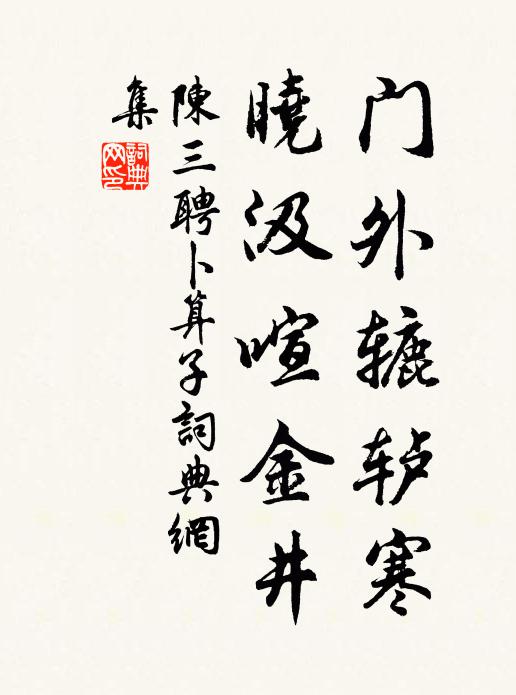 门外辘轳寒
曉汲喧金井
陳三聘卜算子詞典網
集
詞典
网印